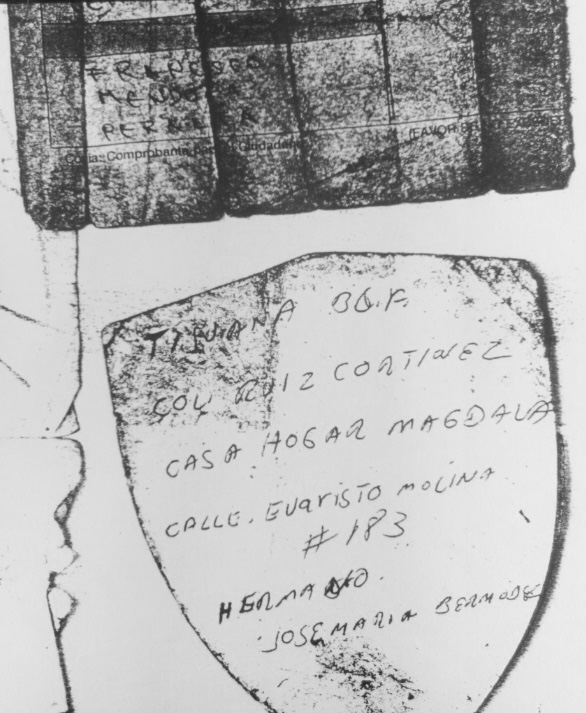 FRANCISCO
MENDOZA
PER
Copia: Comprobante Ciudadano
(FAVOR
TIJUANA BQ.F.
COL RUIZ CORTINEZ
CASA HOGAR MAGDALA
CALLE. EVARISTO MOLINA
#183
HERMANO.
JOSE MARIA BERMUDE